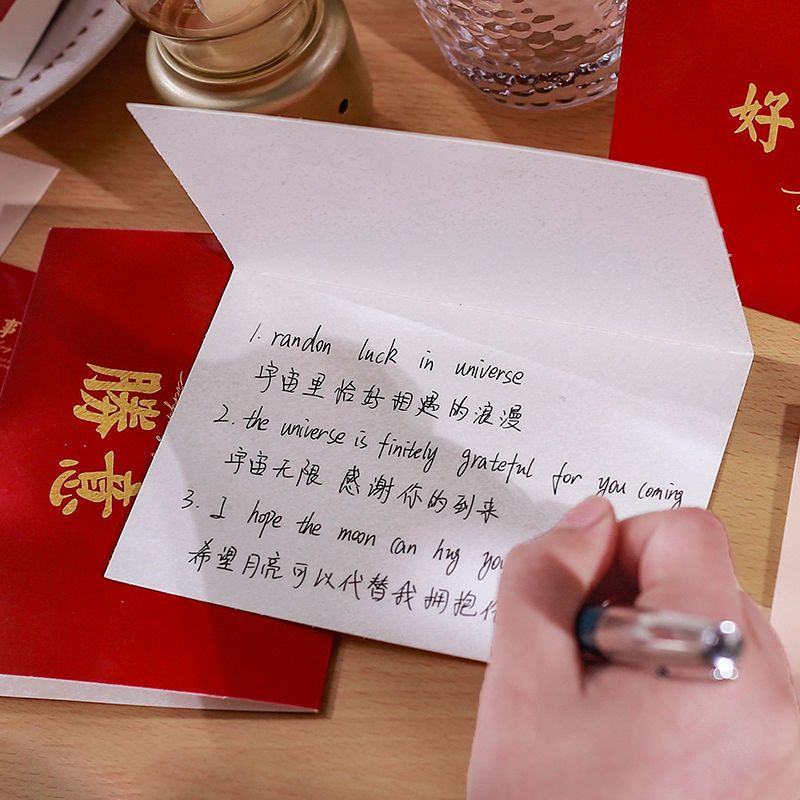 好
事
勝
意
1. randon luck in universe
宇宙里恰好相遇的浪漫
2. the universe is finitely grateful for you coming
宇宙无限 感谢你的到来
3. I hope the moon can hug you
希望月亮可以代替我拥抱你